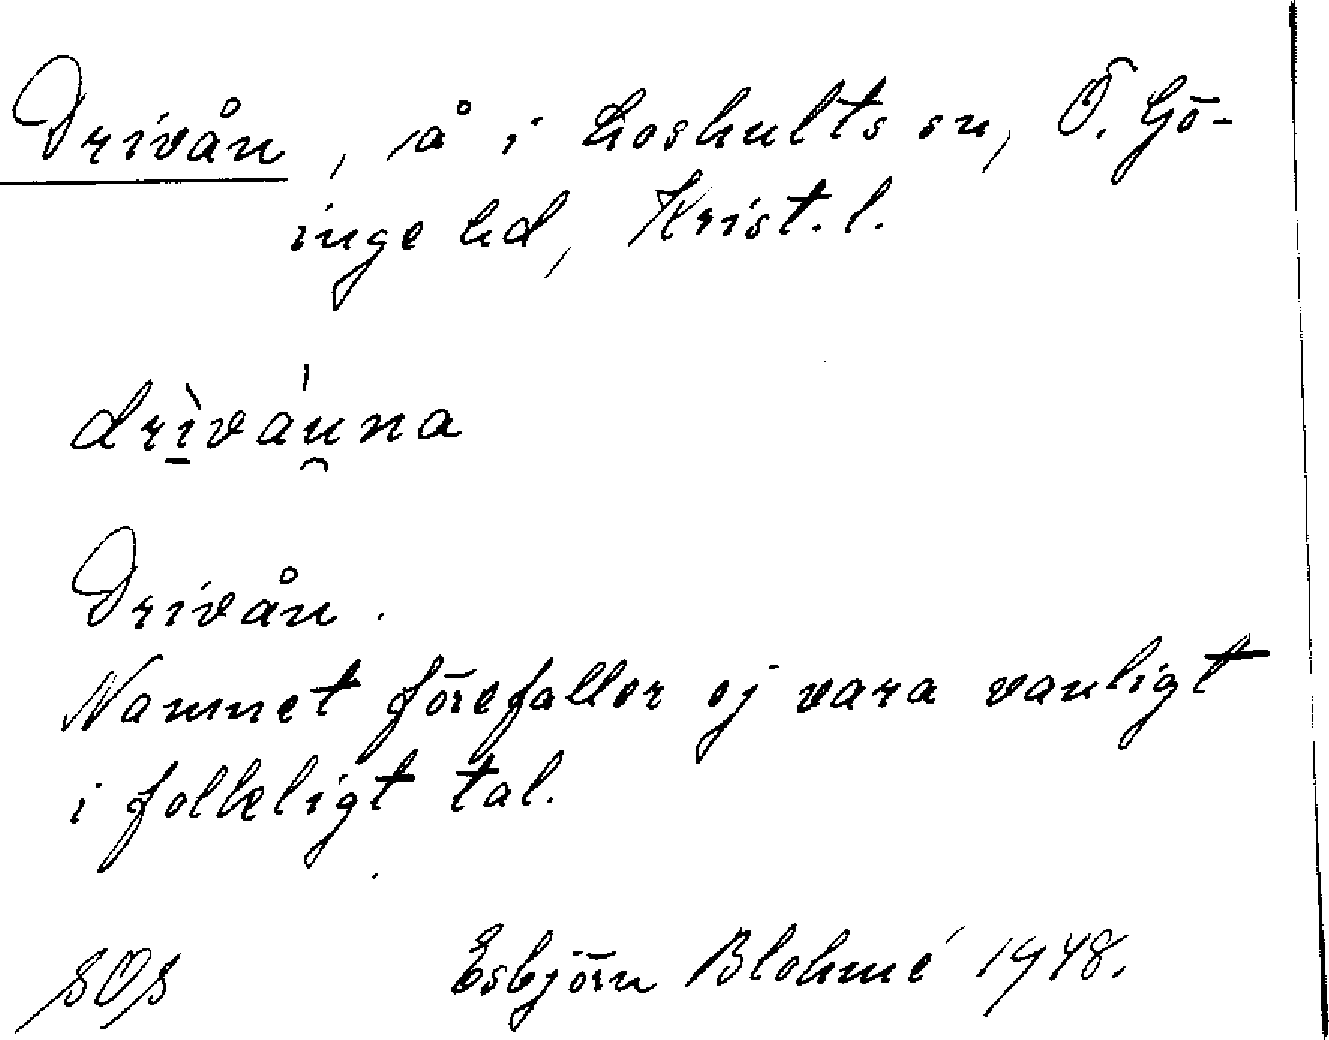 Drivån, å i Loshults sn, Ö. Gö-
inge hd, Krist. l.
drìváu̯na
Drivån.
Namnet förefaller ej vara vanligt
i folkligt tal.
SOS Esbjörn Blohmé 1948.